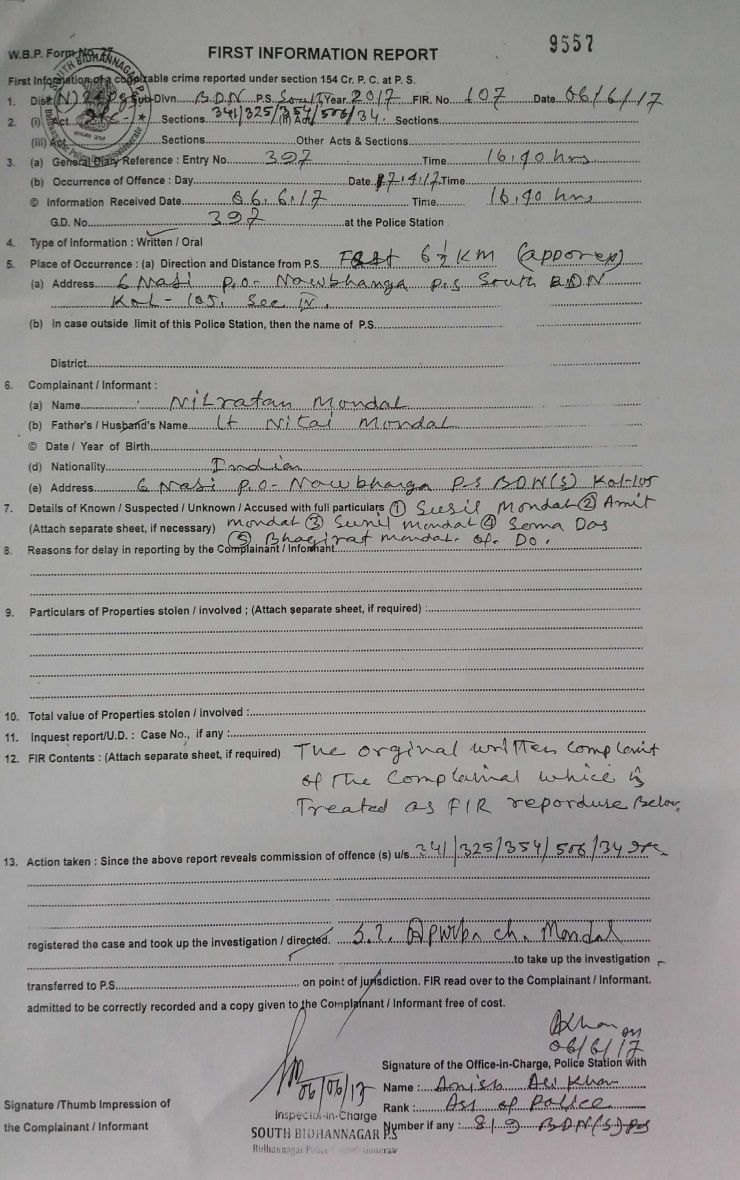 9557
W.B.P. Form No. 27
FIRST INFORMATION REPORT
First Information of a cognizable crime reported under section 154 Cr. P. C. at P. S.
1. Dist (N) 24 Pgs Sub-Divn. B.D.N P.S. South Year 2017 FIR. No 107 Date 06/6/17
2. (i) Act Sections 341/325/354/506/34. (ii) Act Sections
(iii) Act Sections Other Acts & Sections
3. (a) General Diary Reference : Entry No. 397 Time 16.40 hrs
(b) Occurrence of Offence : Day Date 17.4.17 Time
© Information Received Date 06.6.17 Time 16.40 hrs
G.D. No. 397 at the Police Station
4. Type of Information : Written / Oral
5. Place of Occurrence : (a) Direction and Distance from P.S. East 6½ KM (apporex)
(a) Address 6 Nasi P.O- Nowbhanga P.S South BDN
Kol-105, Sec IV.
(b) In case outside limit of this Police Station, then the name of P.S.
District
6. Complainant / Informant :
(a) Name Nilratan Mondal
(b) Father's / Husband's Name Lt Nitai Mondal
© Date / Year of Birth
(d) Nationality Indian
(e) Address 6 Nasi P.O- Nowbhanga P.S BDN(S) Kol-105
7. Details of Known / Suspected / Unknown / Accused with full particulars ① Susil Mondal ② Amit
(Attach separate sheet, if necessary) mondal ③ Sunil mondal ④ Soma Das
⑤ Bhagirat mondal. of. Do.
8. Reasons for delay in reporting by the Complainant / Informant
9. Particulars of Properties stolen / involved ; (Attach separate sheet, if required) :
10. Total value of Properties stolen / involved :
11. Inquest report/U.D. : Case No., if any :
12. FIR Contents : (Attach separate sheet, if required) The orginal written complaint
of the Complainal which is
Treated as FIR reporduse Below,
13. Action taken : Since the above report reveals commission of offence (s) u/s. 341/325/354/506/34 IPC
registered the case and took up the investigation / directed. S.I. Apurba ch. Mondal
to take up the investigation
transferred to P.S. on point of jurisdiction. FIR read over to the Complainant / Informant.
admitted to be correctly recorded and a copy given to the Complainant / Informant free of cost.
06/6/17
Signature of the Office-in-Charge, Police Station with
06/06/17
Name : Anisb Ali Khan
Signature /Thumb Impression of
Rank : ASI of Police
Inspector-in-Charge
the Complainant / Informant
SOUTH BIDHANNAGAR P.S
Number if any : 819 BDN(S) PS
Bidhannagar Police Commissionerate